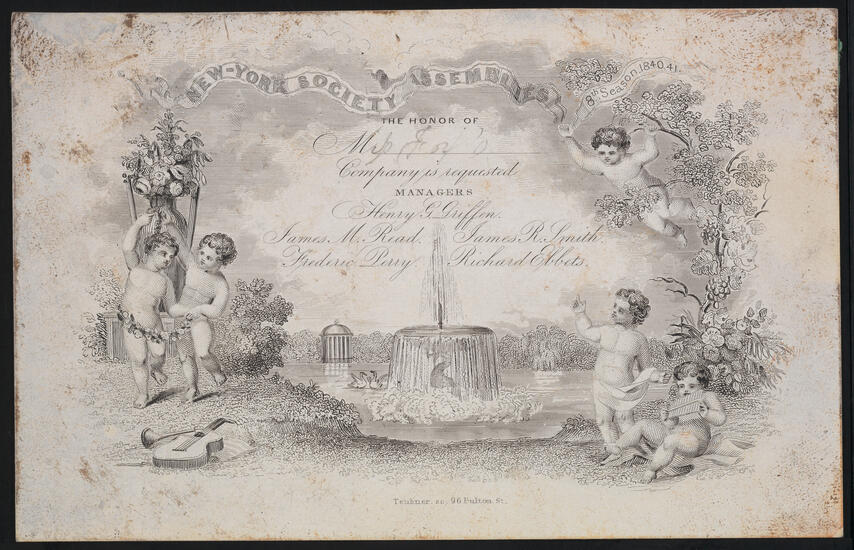 NEW-YORK SOCIETY ASSEMBLIES
8th Season. 1840,41.
THE HONOR OF
M
Company is requested
MANAGERS
Henry G. Griffen.
James M. Read. James R. Smith.
Frederic Perry. Richard Ebbets.
sc. 96 Fulton St.